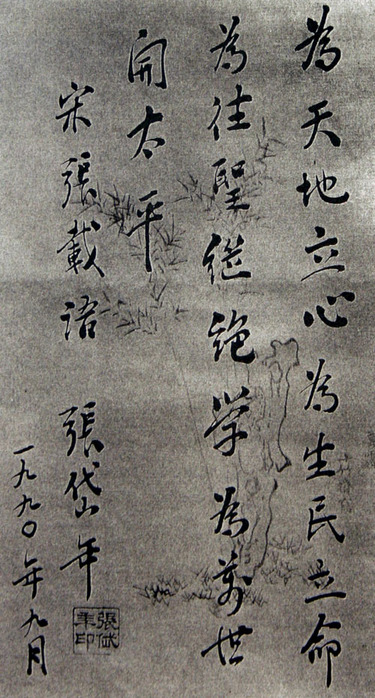 為天地立心為生民立命
為往聖继絶学為万世
開太平
宋張載语
張岱年
一九九〇年九月
張岱年印